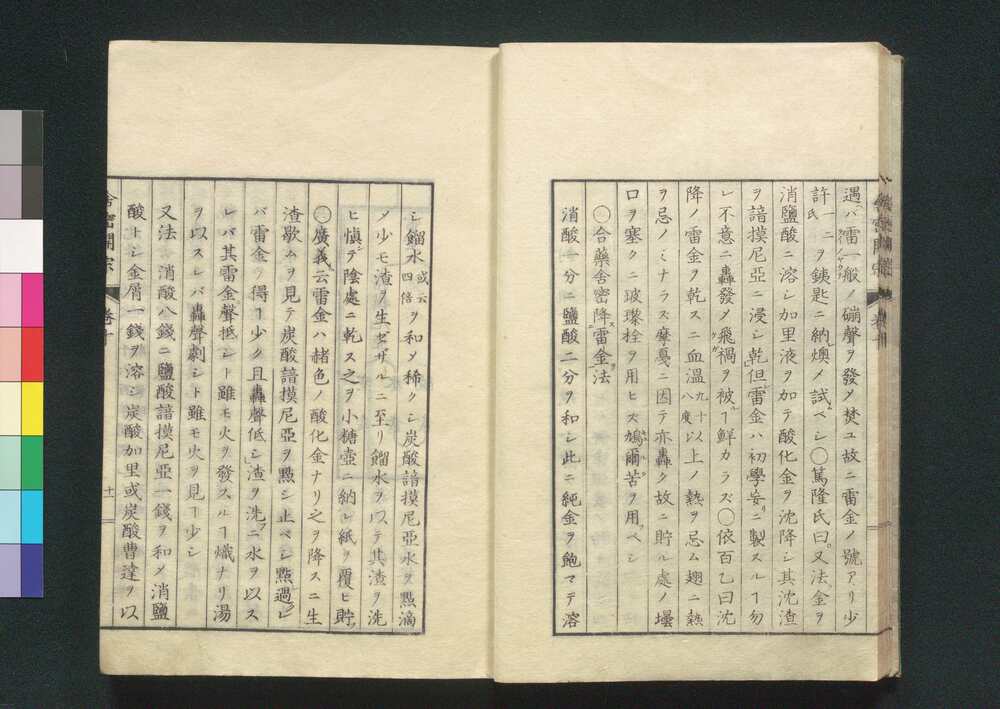 遇ヘバ䨓一般ノ硼聲ヲ發ノ焚ユ故ニ雷金ノ號アリ少
許一二氏ヲ鋏匙ニ納レ燠メ試ベシ〇篤隆氏曰。又法金ヲ
消鹽酸ニ溶シ加里液ヲ加テ酸化金ヲ沈降シ其沈渣
ヲ諳摸尼亞ニ浸シ乾「但雷金ハ初學妄リニ製スルヿ勿
レ不意ニ轟發メ飛禍ヲ被ルヿ鮮カラズ〇依百乙曰沈
降ノ雷金ヲ乾スニ血温九十八度以上ノ熱ヲ忌ム翅ニ熱
ヲ忌ノミナラス摩戛ニ因テ亦轟ク故ニ貯ル處ノ壜
口ヲ塞クニ玻璨栓ヲ用ヒス鳩爾苦ヲ用ベシ
〇合藥舎密降雷金法
消酸一分ニ鹽酸二分ヲ和シ此ニ純金ヲ飽マテ溶
シ餾水或云四倍ヲ和メ稀クシ炭酸諳摸尼亞水ヲ點滴
ノ少モ渣ヲ生ゼザルニ至リ餾水ヲ以テ其渣ヲ洗
ヒ愼テ陰處ニ乾ス之ヲ小糖壺ニ納レ紙ヲ覆ヒ貯フ
〇廣義云雷金ハ赭色ノ酸化金ナリ之ヲ降スニ生
渣歇ムヲ見テ炭酸諳摸尼亞ヲ點シ止ベシ點過レ
バ雷金ヲ得ヿ少ク且轟聲低シ」渣ヲ洗フニ水ヲ以ス
レバ其雷金聲抵シト雖モ火ヲ發スルヿ熾ナリ湯
ヲ以スレバ轟聲劇シト雖モ火ヲ見ヿ少シ
又法 消酸八錢ニ鹽酸諳摸尼亞一錢ヲ和メ消鹽
酸トシ金屑一錢ヲ溶シ炭酸加里或炭酸曹達ヲ以
舎密開宗 卷十 十一